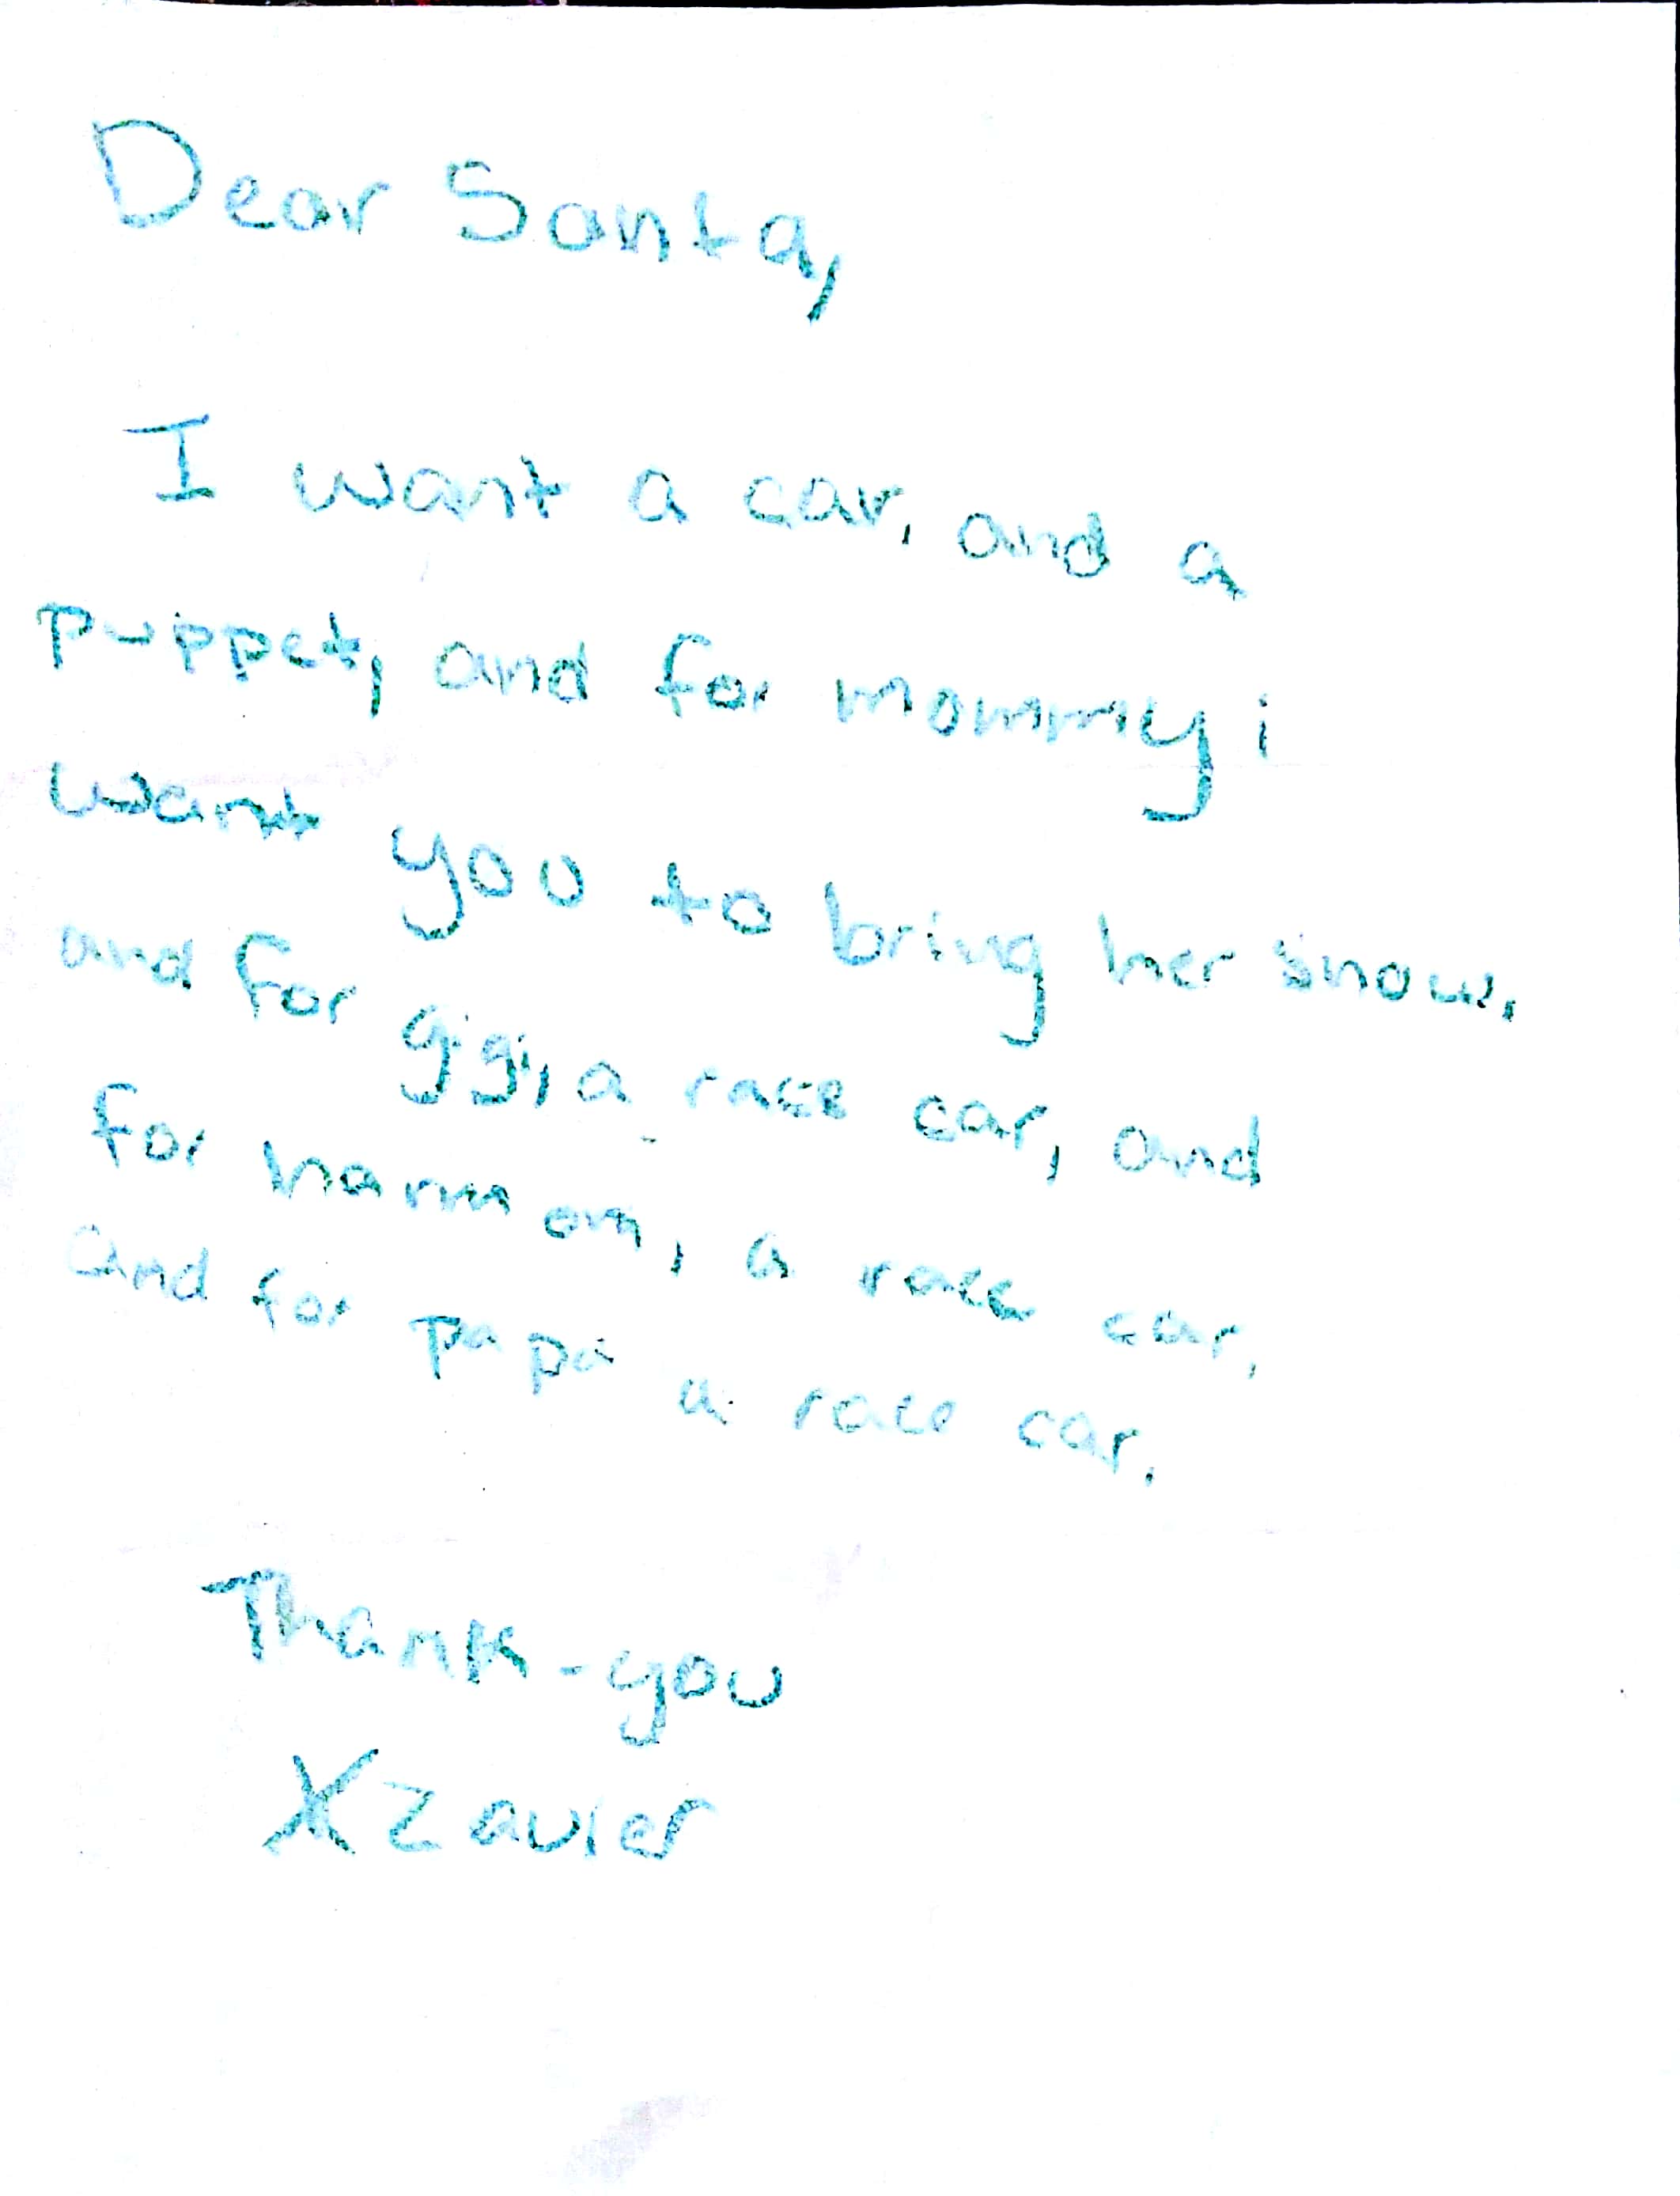 Dear Santa,
I want a car, and a
puppet, and for mommy i
want you to bring her snow.
and for gigi, a race car, and
for harmon, a race car,
and for papa a race car.
Thank-you
Xzavier